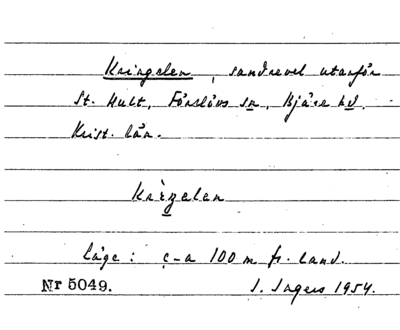 Kringelen, sandrevel utanför
St. Hult, Förslövs sn, Bjäre hd.
Krist. län.
läge: c-a 100 m fr. land.
Nr 5049. I. Ingers 1954.